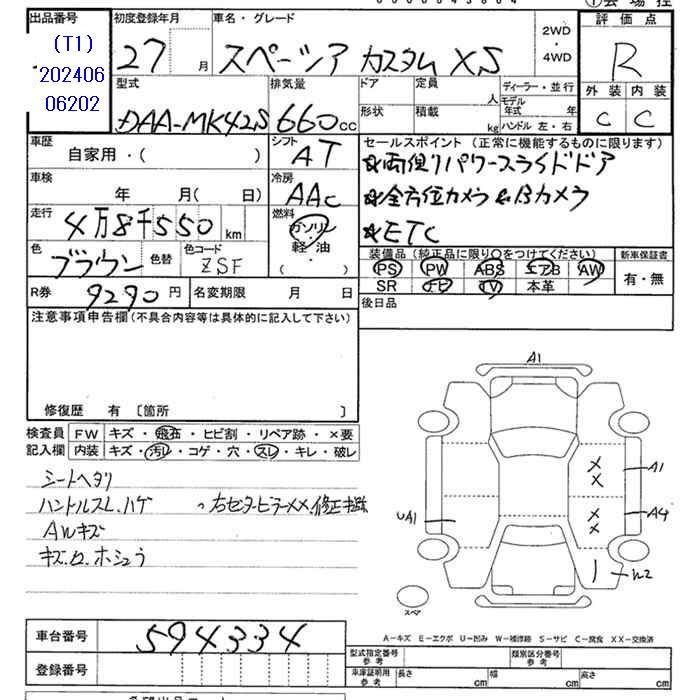 出品番号
(T1)
202406
06202
初度登録年月
27 月
車名・グレード
スペーシア カスタム XS
2WD
・
4WD
評価点
R
外装 内装
C C
型式
DAA-MK42S
排気量
660cc
ドア
形状
定員
人
積載
kg
ディーラー・並行
モデル年式 年
ハンドル 左・右
車歴
自家用・( )
シフト
AT
車検
年 月( 日)
冷房
AAC
走行
4万8千550 km
燃料
ガソリン
軽・油
( )
色
ブラウン
色替
色コード
ZSF
R券 9290円
名変期限 月 日
セールスポイント(正常に機能するものに限ります)
☆両側パワースライドドア
☆全方位カメラ &Bカメラ
☆ETC
装備品(純正品に限り〇をつけてください)
PS PW ABS エアB AW
SR ナビ TV 本革
新車保証書
有・無
後日品
注意事項申告欄(不具合内容等は具体的に記入して下さい)
修復歴 有 〔箇所 〕
検査員
記入欄
FW キズ・飛石・ヒビ割・リペア跡・×要
内装 キズ・汚レ・コゲ・穴・スレ・キレ・破レ
シートヘタリ
ハンドルスレ.ハゲ
右センターピラーXX.修正跡
AWキズ
キズ.凹.ホシュウ
A1
A1
A4
UA1
W2
X
X
X
X
スペア
車台番号 594334
登録番号
A－キズ E－エクボ U－凹み W－補修跡 S－サビ C－腐食 XX－交換済
型式指定番号
参考
類別区分番号
参考
車庫証明用
参考
長さ cm
幅 cm
高さ cm